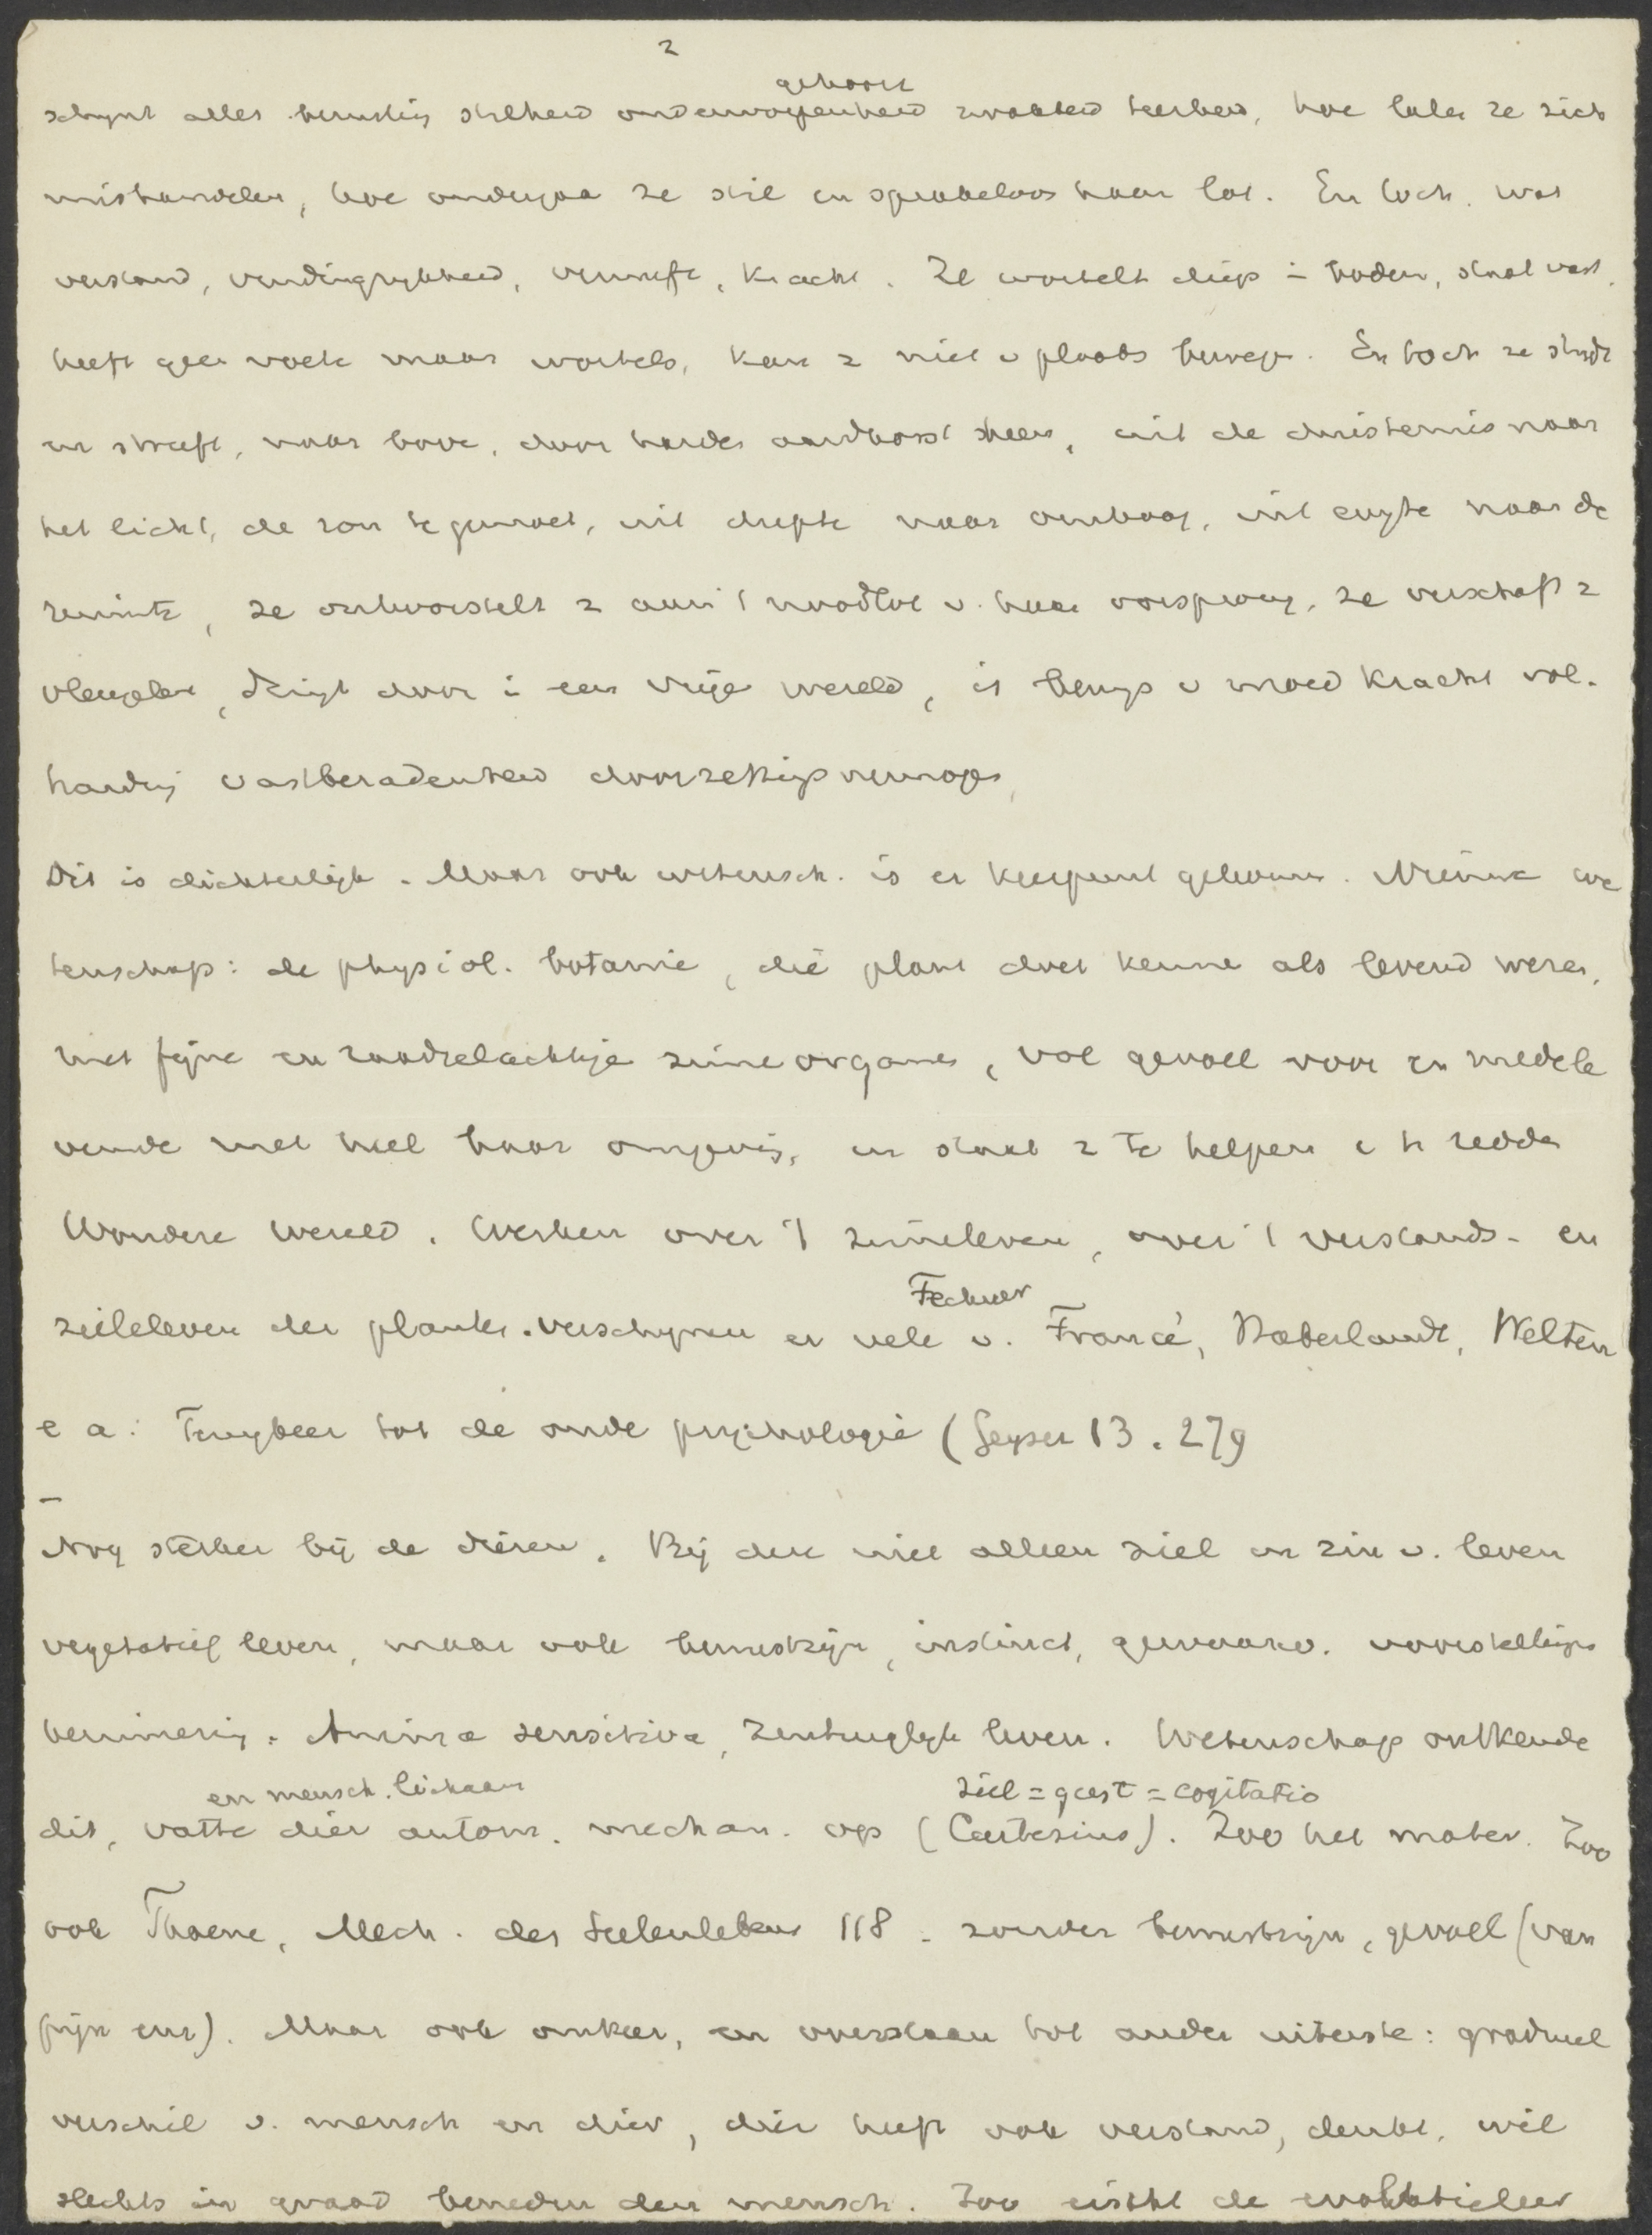 2
gehoorz
schijnt alles berusting stilheid onderworpenheid zwakheid teerheid, hoe laten ze zich
mishandelen, hoe ondergaa ze stil en sprakeloos haar lot. En toch. wat
verstand, vindingrykheid, vernuft, kracht. Ze wortelt diep i bodem, staat vast,
heeft geen voete maar wortels, kan z niet v plaats bewege. En toch ze strydt
en streeft, naar bove, door harde aardkorst heen, uit de duisternis naar
het licht, de zon te gemoet, uit diepte naar omhoog, uit engte naar de
ruimte, ze ontworstelt z aan 't noodlot v. haar oorsprong, ze verschaft z
vleugelen, dringt door i een vrije wereld, is bewys v moed kracht vol-
hardig vastberadenheid doorzettigsvermoge
Dit is dichterlijk. Maar ook wetensch. is er keerpunt gekomen. Nieuwe we
tenschap: de physiol. botanie, die plant doet kenne als levend weze,
met fijne en raadselachtige zinneorgane, vol gevoel voor en medele
vende met heel haar omgevig, in staat z te helpen e te redde
Wondere wereld. Werken over 't zinneleven, over 't verstands- en
Fechner
zieleleven der planten. verschynen er vele v. Francé, Haberlandt, Welten
e a: Terugkeer tot de oude psychologie (Geyser 13. 279
Nog sterker bij de dieren. Bij dere niet alleen ziel en zin v. leven
vegetatief leven, maar ook bewustzijn, instinct, gewaarw. voorstellings
herinnerig. Anima sensitiva, zintuiglyk leven. Wetenschap ontkende
en mensch. lichaam
ziel = geest = cogitatio
dit, vatte dier autom. mechan. op (Cartesius). Zoo het mater. Zoo
ook Thoene, Mech. des Seelenlebens 118. zonder bewustzijn, gevoel (van
pijn enz). Maar ook omkeer, en overslaan tot ander uiterste: gradueel
verschil v. mensch en dier, dier heeft ook verstand, denkt, wil
slechts in graad beneden den mensch. Zoo eischt de evolutieleer